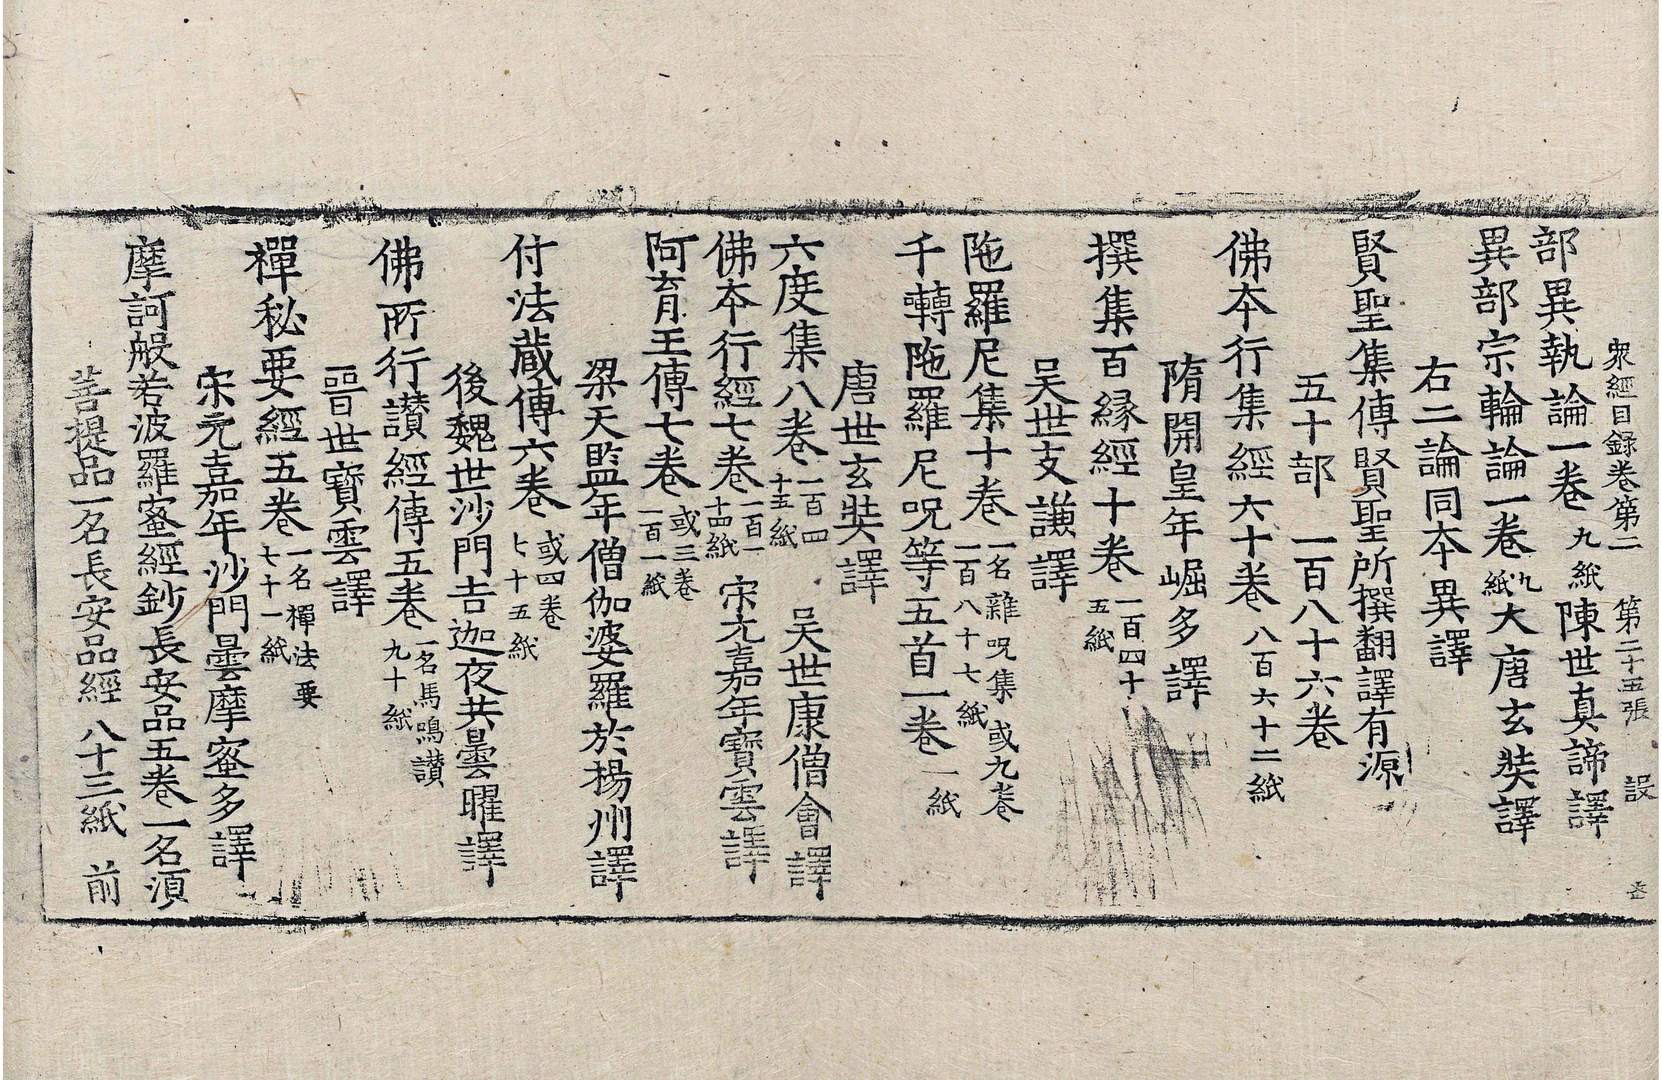 衆經目録卷第二 第二十五張 設
部異執論一卷 九紙 陳世真諦譯
異部宗輪論一卷 九紙 大唐玄奘譯
右二論同本異譯
賢聖集傳賢聖所撰翻譯有源
五十部 一百八十六卷
佛本行集經六十卷 八百六十二紙
隋開皇年崛多譯
撰集百縁經十卷 一百四十五紙
吴世支謙譯
陁羅尼集十卷 一名雜呪集或九卷 一百八十七紙
千轉陁羅尼呪等五首一卷 一紙
唐世玄奘譯
六度集八卷 一百四十五紙 吴世康僧會譯
佛本行經七卷 一百一十四紙 宋元嘉年寶雲譯
阿育王傳七卷 或三卷 一百一紙
梁天監年僧伽婆羅於楊州譯
付法藏傳六卷 或四卷 七十五紙
後魏世沙門吉迦夜共曇曜譯
佛所行讃經傳五卷 一名馬鳴讃 九十紙
晉世寶雲譯
禪秘要經五卷 一名禪法要 七十一紙
宋元嘉年沙門曇摩蜜多譯
摩訶般若波羅蜜經鈔長安品五卷一名須
菩提品一名長安品經 八十三紙 前